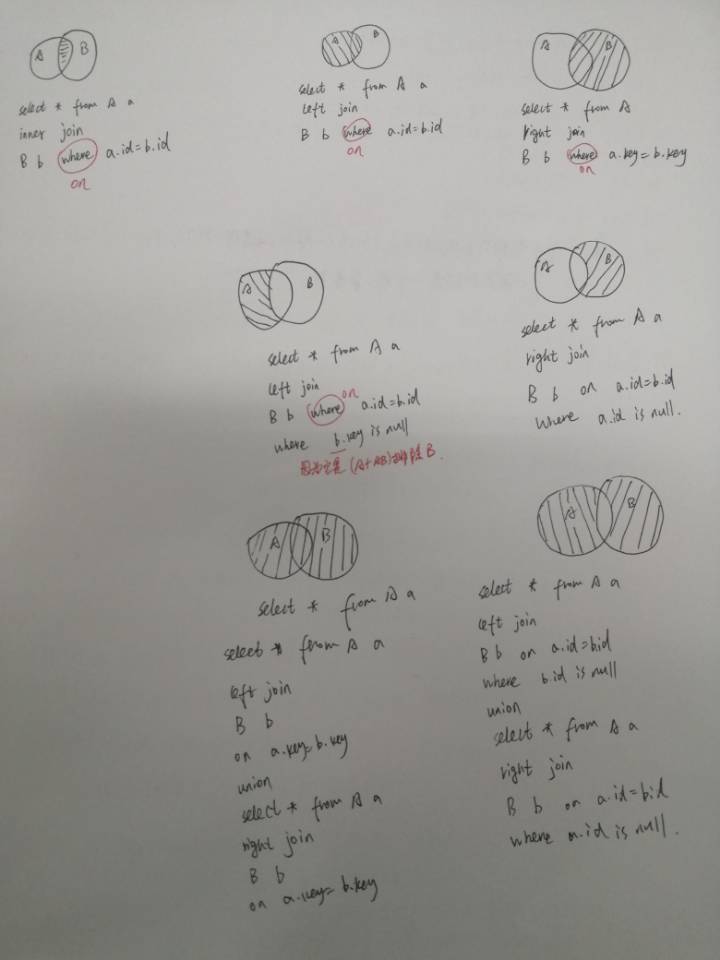 A B
select * from A a
inner join
B b where a.id=b.id
on
A B
select * from A a
left join
B b where a.id=b.id
on
A B
select * from A
right join
B b where a.key=b.key
on
A B
select * from A a
left join
on
B b where a.id=b.id
where b.key is null
(A+AB) B.
A B
select * from A a
right join
B b on a.id=b.id
where a.id is null.
A B
select * from A a
select * from A a
left join
B b
on a.key=b.key
union
select * from A a
right join
B b
on a.key=b.key
A B
select * from A a
left join
B b on a.id=b.id
where b.id is null
union
select * from A a
right join
B b on a.id=b.id
where a.id is null.